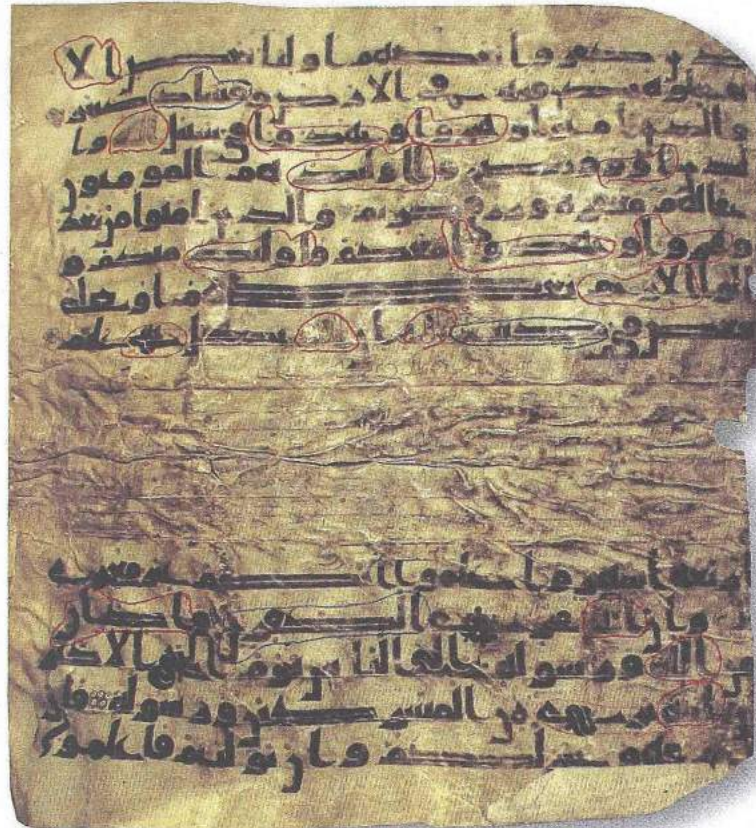 لذين كفروا بعضهم اوليا بعض الا
تفعلوه تكن فتنه في الارض وفساد كبير
والذين امنوا وهجروا وجهدوا في سبيل الله وا
لذين اووا ونصروا اوليك هم المومنون
حقا لهم مغفره ورزق كريم والذين امنوا من بعد
وهجروا وجهدوا معكم فاوليك منكم و
اولوا الارحم بعضهم اولى
ببعض في كتب الله ان الله بكل شي عليم
اربعه اشهر واعلموا انكم غير معجزي
الله وان الله مخزي الكفرين واذان
من الله ورسوله الى الناس يوم الحج الاكبر
ان الله بري من المشركين ورسوله فان
تبتم فهو خير لكم وان توليتم فاعلموا